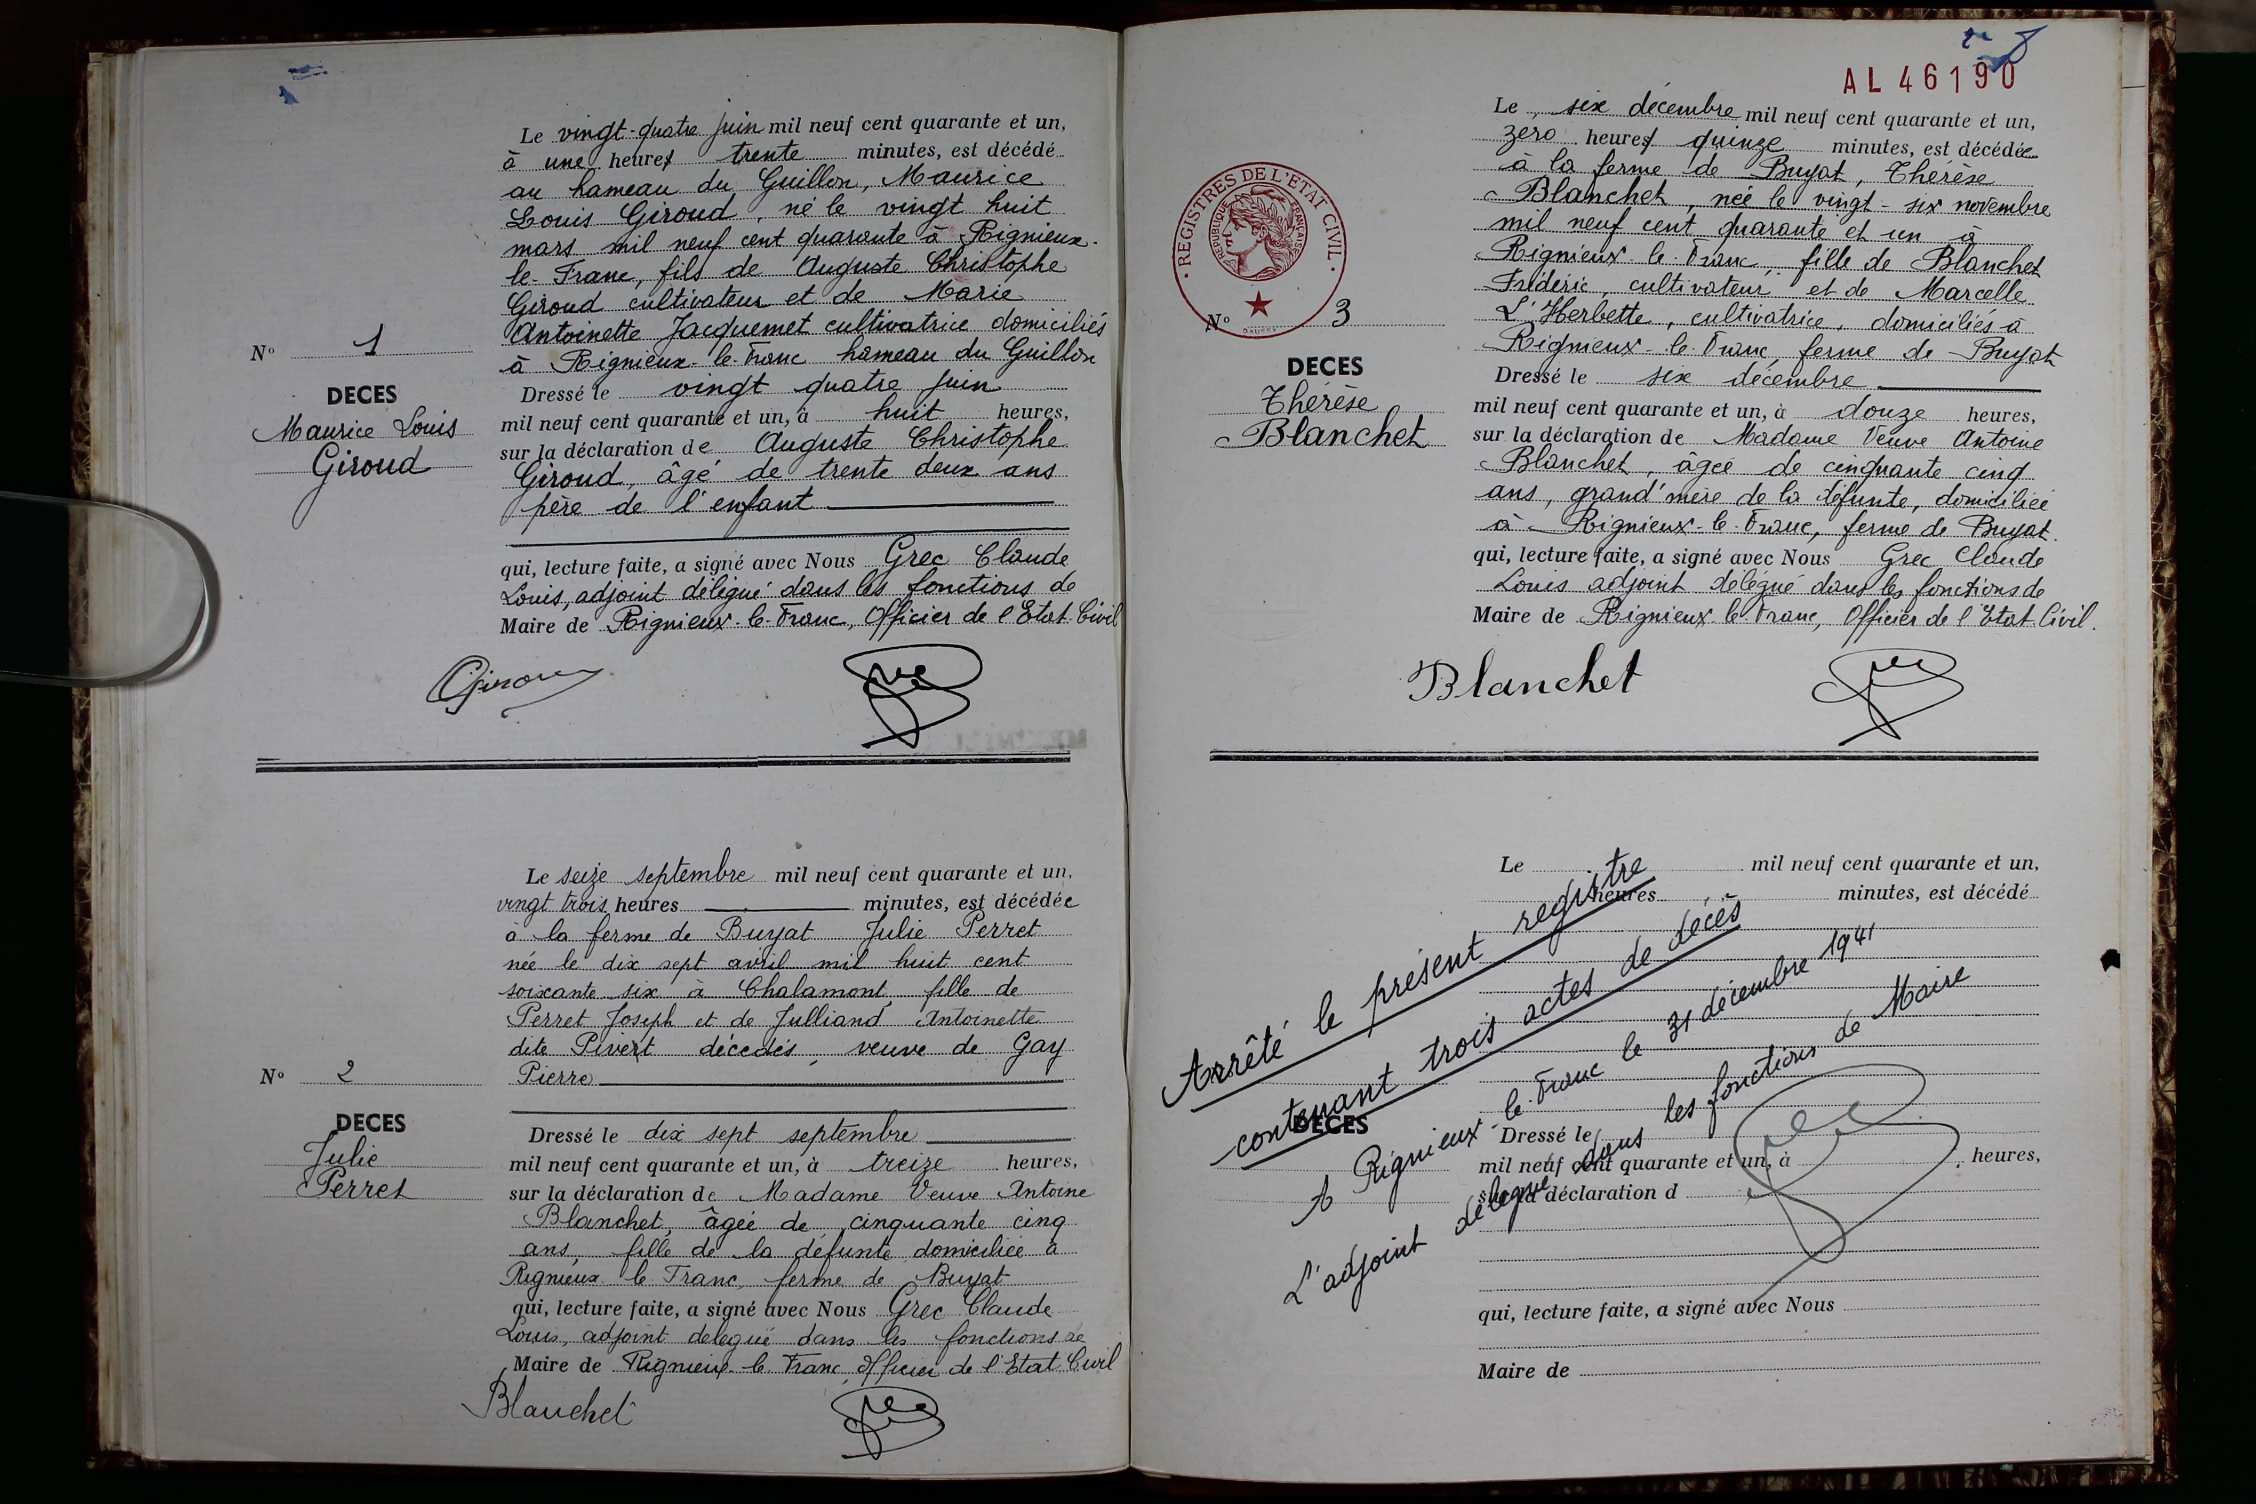 Le vingt-quatre juin mil neuf cent quarante et un,
à une heures trente minutes, est décédé
au hameau du Guillon, Maurice
Louis Giroud, né le vingt huit
mars mil neuf cent quarante à Rignieux-
le-Franc, fils de Auguste Christophe
Giroud cultivateur et de Marie
Antoinette Jacquemet cultivatrice domiciliés
à Rignieux-le-Franc hameau du Guillon
Dressé le vingt quatre juin
mil neuf cent quarante et un, à huit heures,
sur la déclaration de Auguste Christophe
Giroud, âgé de trente deux ans
père de l'enfant
qui, lecture faite, a signé avec Nous Grec Claude
Louis, adjoint délégué dans les fonctions de
Maire de Rignieux-le-Franc, Officier de l'Etat-Civil
No 1
DECES
Maurice Louis
Giroud
Le seize septembre mil neuf cent quarante et un,
vingt trois heures minutes, est décédée
à la ferme de Buyat Julie Perret
née le dix sept avril mil huit cent
soixante six à Chalamont, fille de
Perret Joseph et de Julliand Antoinette
dite Pivert décédés, veuve de Gay
Pierre
No 2
DECES
Julie
Perret
Dressé le dix sept septembre
mil neuf cent quarante et un, à treize heures,
sur la déclaration de Madame Veuve Antoine
Blanchet, âgée de cinquante cinq
ans, fille de la défunte domiciliée à
Rignieux le Franc, ferme de Buyat
qui, lecture faite, a signé avec Nous Grec Claude
Louis, adjoint délégué dans les fonctions de
Maire de Rignieux-le-Franc, Officier de l'Etat Civil
Blanchet
AL 46190
Le six décembre mil neuf cent quarante et un,
zéro heures quinze minutes, est décédée
à la ferme de Buyat, Thérèse
Blanchet, née le vingt-six novembre
mil neuf cent quarante et un à
Rignieux-le-Franc, fille de Blanchet
Frédéric, cultivateur et de Marcelle
L'Herbette, cultivatrice, domiciliés à
Rignieux-le-Franc, ferme de Buyat
REGISTRES DE L'ETAT CIVIL
REPUBLIQUE FRANÇAISE
No 3
DECES
Thérèse
Blanchet
Dressé le six décembre
mil neuf cent quarante et un, à douze heures,
sur la déclaration de Madame Veuve Antoine
Blanchet, âgée de cinquante cinq
ans, grand'mère de la défunte, domiciliée
à Rignieux-le-Franc, ferme de Buyat.
qui, lecture faite, a signé avec Nous Grec Claude
Louis adjoint délégué dans les fonctions de
Maire de Rignieux-le-Franc, Officier de l'Etat Civil.
Blanchet
Le mil neuf cent quarante et un,
heures minutes, est décédé
Arrêté le présent registre
contenant trois actes de décès
A Rignieux-le-Franc le 31 décembre 1941
L'adjoint délégué dans les fonctions de Maire
DECES
Dressé le
mil neuf cent quarante et un, à heures,
sur la déclaration d
qui, lecture faite, a signé avec Nous
Maire de